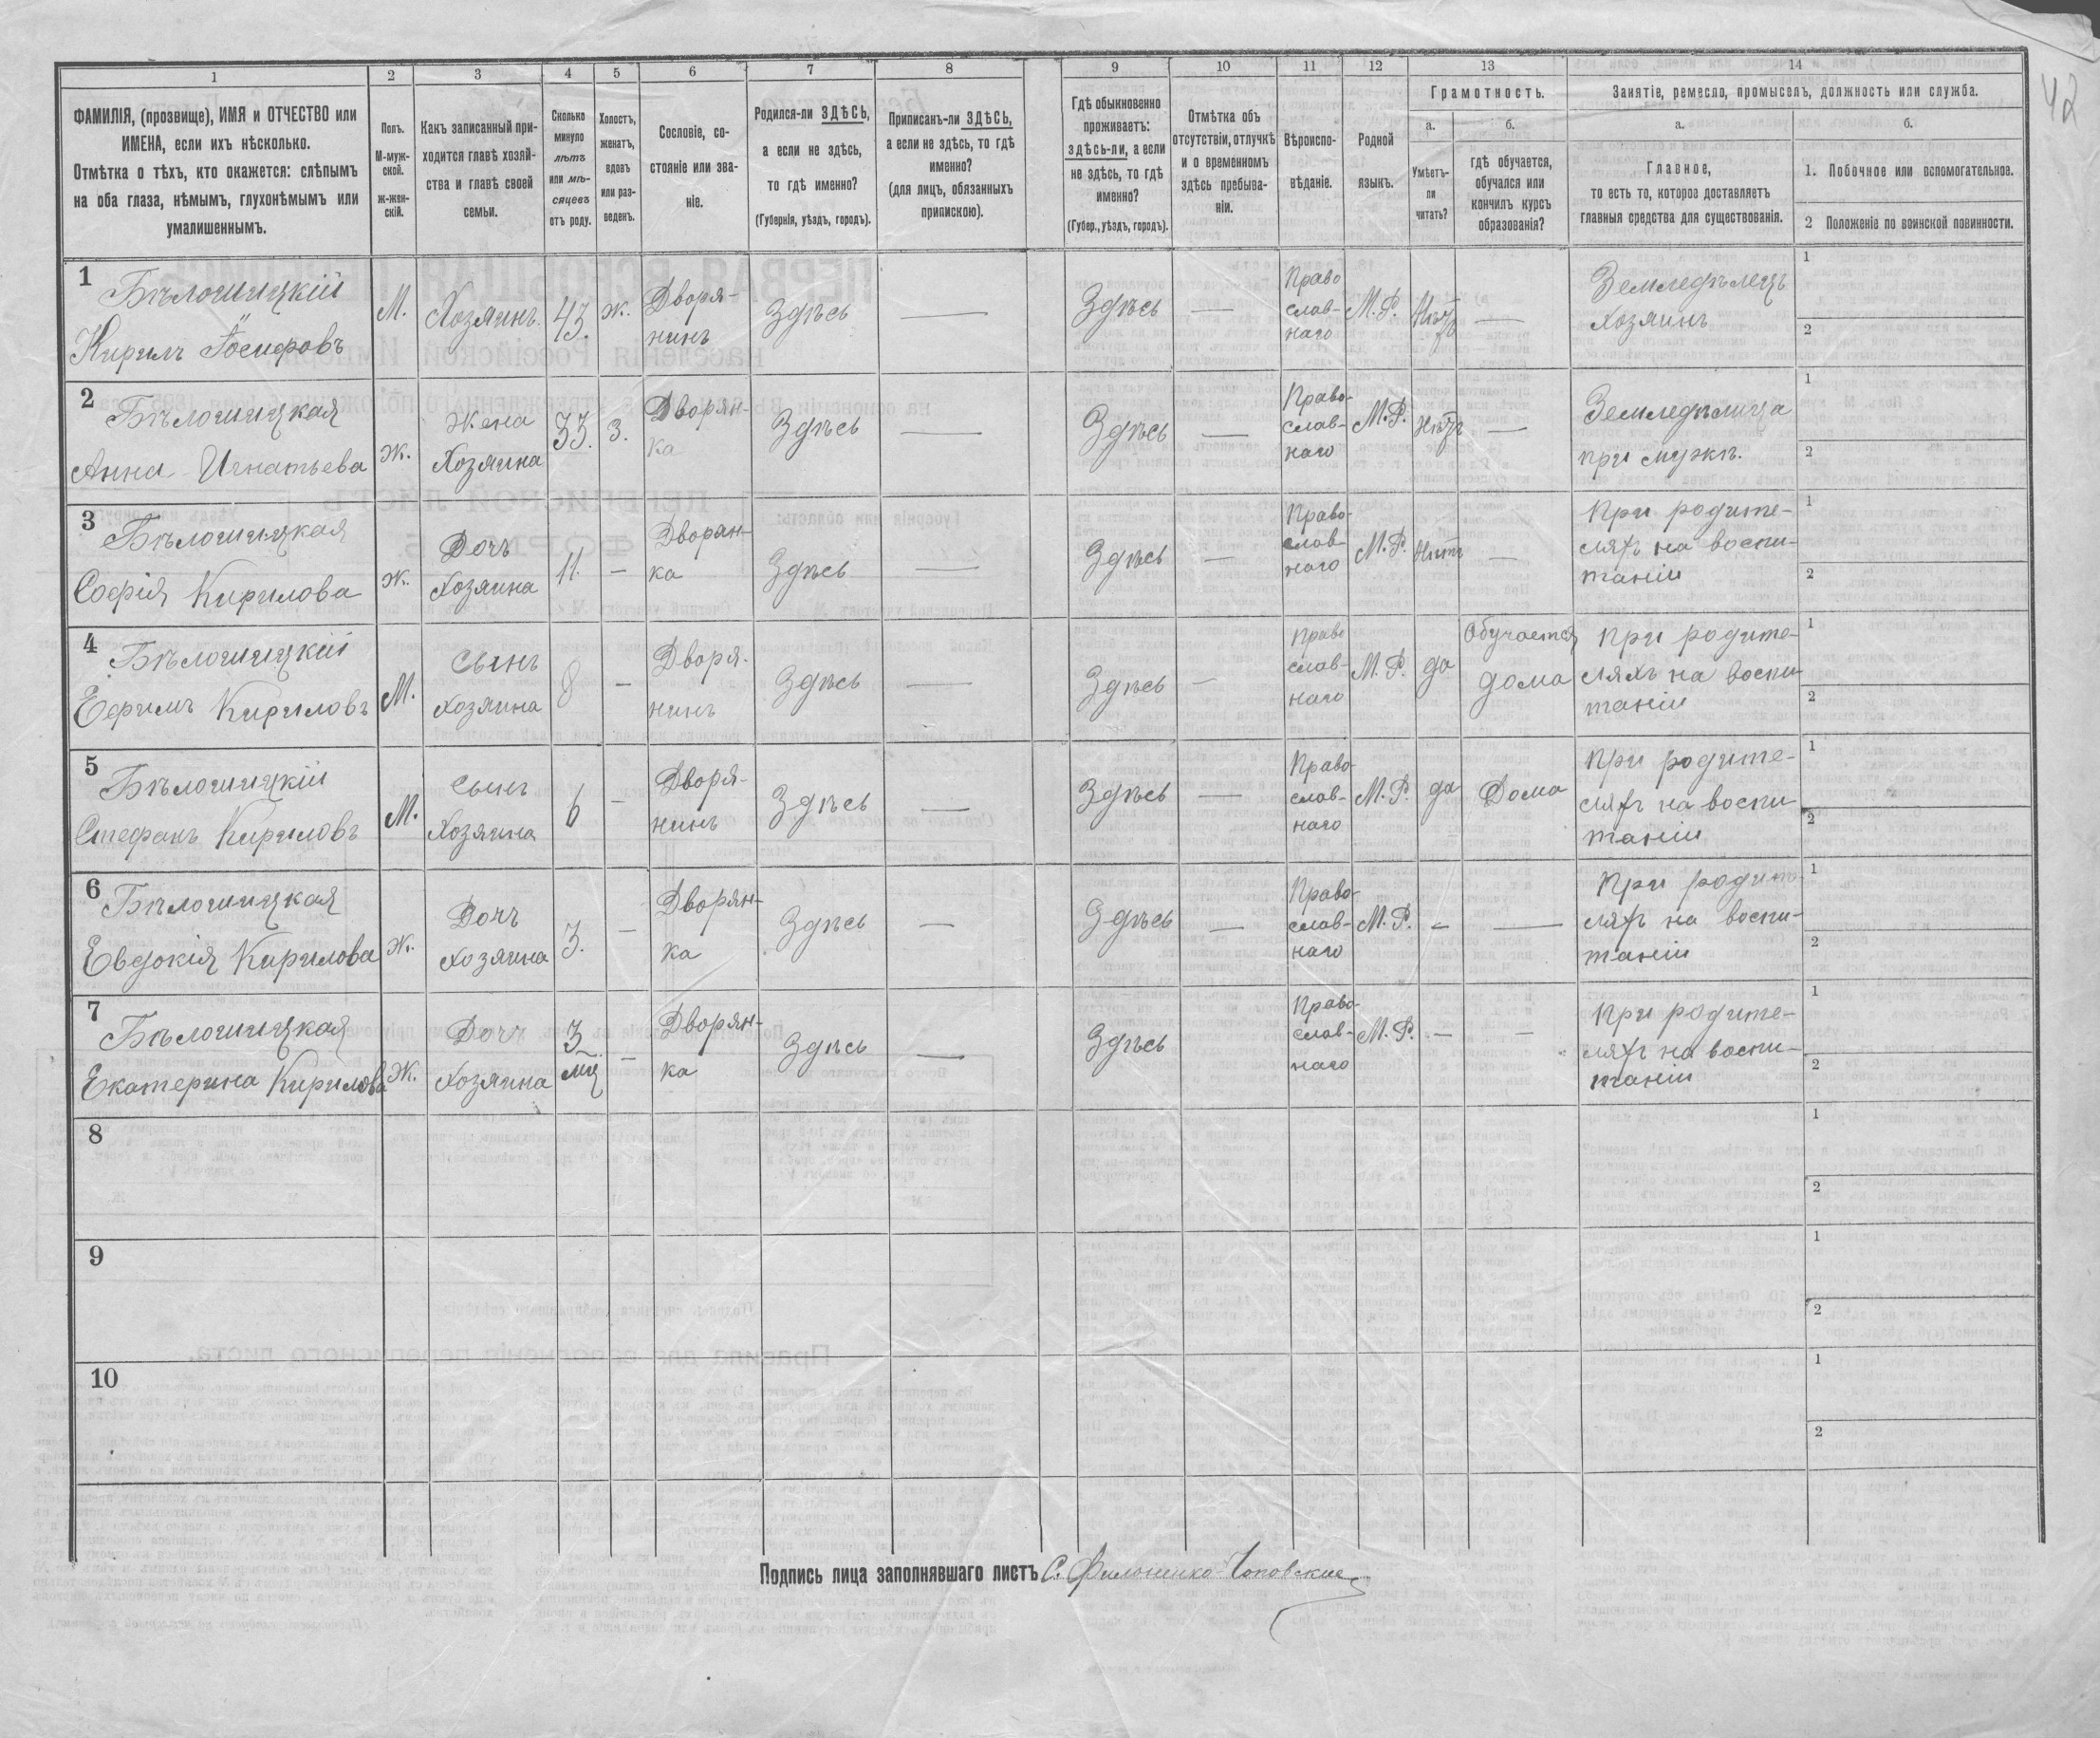 42
1 2 3 4 5 6 7 8 9 10 11 12 13 14
ФАМИЛІЯ, (прозвище), ИМЯ и ОТЧЕСТВО или
ИМЕНА, если ихъ нѣсколько.
Отмѣтка о тѣхъ, кто окажется: слѣпымъ
на оба глаза, нѣмымъ, глухонѣмымъ или
умалишеннымъ.
Полъ.
М-муж-
ской.
ж-жен-
скій.
Какъ записанный при-
ходится главѣ хозяй-
ства и главѣ своей
семьи.
Сколько
минуло
лѣтъ
или мѣ-
сяцевъ
отъ роду.
Холостъ,
женатъ,
вдовъ
или раз-
веденъ.
Сословіе, со-
стояніе или зва-
ніе.
Родился-ли ЗДѢСЬ,
а если не здѣсь,
то гдѣ именно?
(Губернія, уѣздъ, городъ).
Приписанъ-ли ЗДѢСЬ,
а если не здѣсь, то гдѣ
именно?
(для лицъ, обязанныхъ
припискою).
Гдѣ обыкновенно
проживаетъ:
здѣсь-ли, а если
не здѣсь, то гдѣ
именно?
(Губер., уѣздъ, городъ).
Отмѣтка объ
отсутствіи, отлучкѣ
и о временномъ
здѣсь пребыва-
ніи.
Вѣроиспо-
вѣданіе.
Родной
языкъ.
Грамотность.
а.
Умѣетъ-
ли
читать?
б.
гдѣ обучается,
обучался или
кончилъ курсъ
образованія?
Занятіе, ремесло, промыселъ, должность или служба.
а.
Главное,
то есть то, которое доставляетъ
главныя средства для существованія.
б.
1. Побочное или вспомогательное.
2 Положеніе по воинской повинности.
1
Бѣлошицкій
Кирилъ Іосифовъ
М.
Хозяинъ.
43.
Ж.
Дворя-
нинъ
Здѣсь
—
Здѣсь
—
Право
слав-
наго
М.Р.
Нѣтъ
—
Земледѣлецъ
Хозяинъ
1
2
2
Бѣлошицкая
Анна Игнатьева
Ж.
Жена
Хозяина
33.
З.
Дворян-
ка
Здѣсь
—
Здѣсь
—
Право-
слав-
наго
М.Р.
Нѣтъ
—
Земледѣлица
при мужѣ.
1
2
3
Бѣлошицкая
Софія Кирилова
Ж.
Дочь
Хозяина
11.
—
Дворян-
ка
Здѣсь
—
Здѣсь
—
Право-
слав-
наго
М.Р.
Нѣтъ
—
При родите-
ляхъ на воспи-
таніи
1
2
4
Бѣлошицкій
Ефимъ Кириловъ
М.
Сынъ
Хозяина
8
—
Дворя-
нинъ
Здѣсь
—
Здѣсь
—
Право
слав-
наго
М.Р.
да
Обучается
дома
При родите-
ляхъ на воспи-
таніи
1
2
5
Бѣлошицкій
Стефанъ Кириловъ
М.
Сынъ
Хозяина
6
—
Дворя-
нинъ
Здѣсь
—
Здѣсь
—
Право-
слав-
наго
М.Р.
да
Дома
При родите-
ляхъ на воспи-
таніи
1
2
6
Бѣлошицкая
Евдокія Кирилова
Ж.
Дочь
Хозяина
3.
—
Дворян-
ка
Здѣсь
—
Здѣсь
—
Право-
слав-
наго
М.Р.
—
—
При родите-
ляхъ на воспи-
таніи
1
2
7
Бѣлошицкая
Екатерина Кирилова
Ж.
Дочь
Хозяина
3
мц
—
Дворян-
ка
Здѣсь
—
Здѣсь
Право-
слав-
наго
М.Р.
—
—
При родите-
ляхъ на воспи-
таніи
1
2
8
1
2
9
1
2
10
1
2
Подпись лица заполнявшаго листъ С.